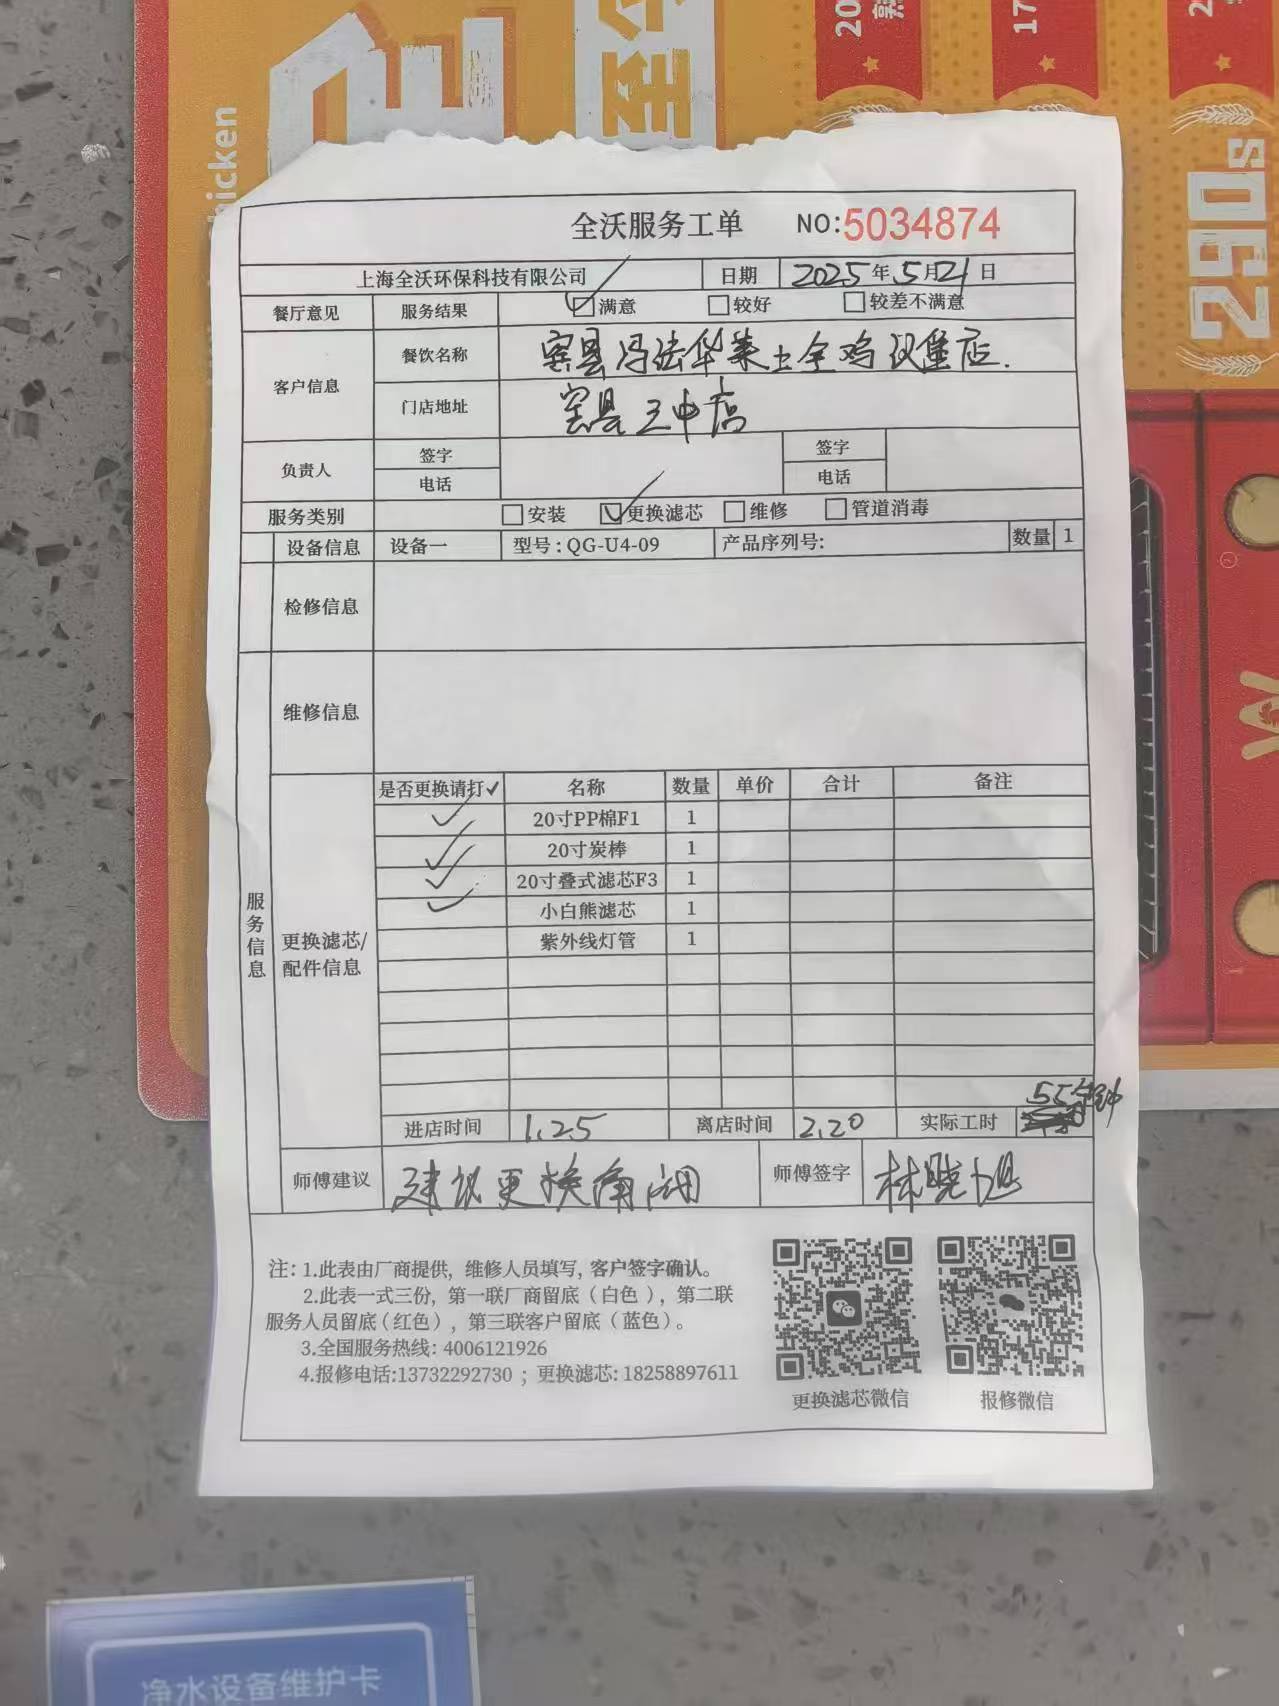 hicken
全
290s
全沃服务工单 NO:5034874
上海全沃环保科技有限公司 日期 2025年5月21日
餐厅意见 服务结果 满意 较好 较差不满意
客户信息 餐饮名称 宾县冯法华莱士全鸡汉堡店.
门店地址 宾县三中店
负责人 签字 签字
电话 电话
服务类别 安装 更换滤芯 维修 管道消毒
设备信息 设备一 型号:QG-U4-09 产品序列号: 数量 1
检修信息
维修信息
服务信息
更换滤芯/
配件信息
是否更换请打✓ 名称 数量 单价 合计 备注
✓ 20寸PP棉F1 1
✓ 20寸炭棒 1
✓ 20寸叠式滤芯F3 1
✓ 小白熊滤芯 1
紫外线灯管 1
进店时间 1.25 离店时间 2.20 实际工时 55分钟
师傅建议 建议更换角阀 师傅签字 林晓旭
注: 1.此表由厂商提供, 维修人员填写, 客户签字确认。
2.此表一式三份, 第一联厂商留底(白色), 第二联
服务人员留底(红色), 第三联客户留底(蓝色)。
3.全国服务热线: 4006121926
4.报修电话:13732292730 ; 更换滤芯: 18258897611
更换滤芯微信 报修微信
净水设备维护卡